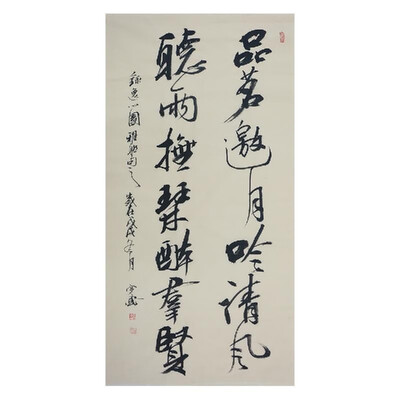 品茗邀月吟清风
聽雨撫琴醉羣賢
歲在戊戌